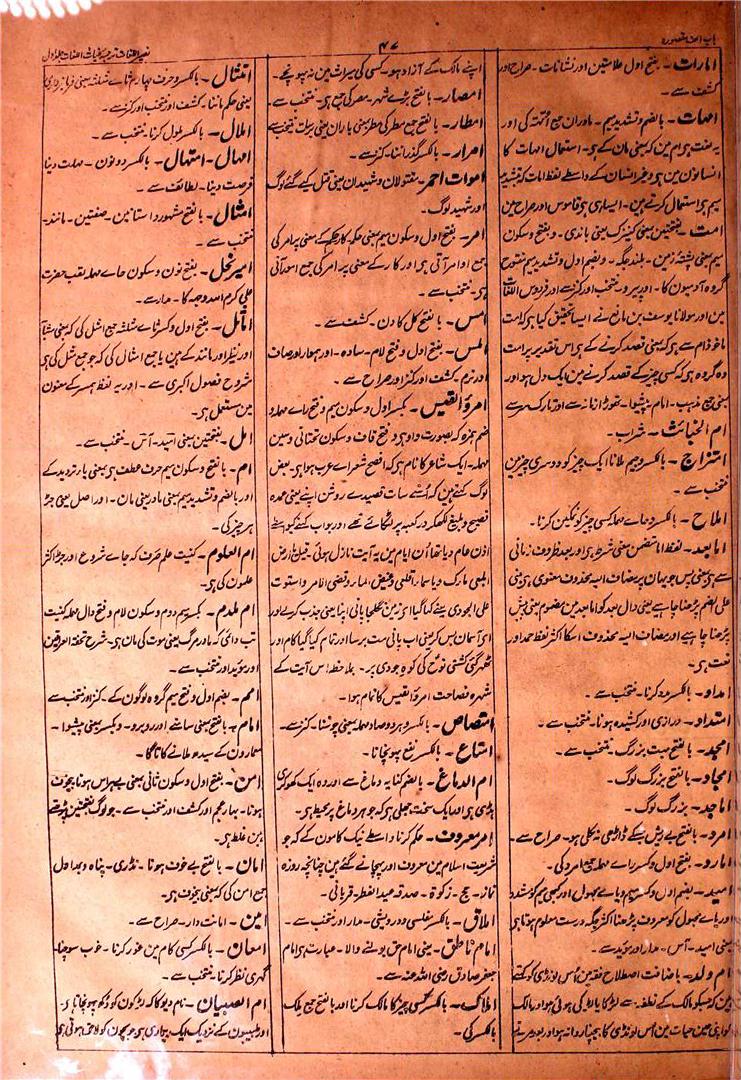 باب الف مقصورہ
۴۷
نصیر اللغات ترجمہ غیاث اللغات جلد اول
امارات۔ بفتح اول علامتین اور نشانات۔ صراح اور
کشف سے۔
امہات۔ بالضم و تشدید میم۔ مادران جمع اُمّہت کی اور
انسانون مین ہی و غیر انسان کے واسطے لفظ امات کا بتشدید
میم ہی استعمال کرتے ہین۔ ایسا ہی ہی قاموس اور صراح مین
امت۔ بفتحتین بمعنی کنیزک یعنی باندی۔ و بفتح و سکون
میم بمعنی پشتہ زمین۔ بلند جگہ۔ و بضم اول و تشدید میم مفتوح
گروہ آدمیون کا۔ اور پیرو۔ منتخب اور کنز سے اور فردوس اللغات
مین اور مولانا یوسف بن مانع نے ایسا تحقیق کیا ہی کہ امت
وہ گروہ ہی کہ کسی چیز کے قصد کرنے مین ایک دل ہو اور
ام الخبائث۔ شراب۔
امتزاج۔ بالکسر و جیم ملانا ایک چیز کو دوسری چیز مین
منتخب سے۔
املاح۔ بالکسر و حاے مہملہ کسی چیز کو نمکین کرنا۔
اما بعد۔ لفظ اما متضمن معنی شرط ہی اور بعد ظروف زمانی
نعت ہی۔
امداد۔ بالکسر مدد کرنا۔ منتخب سے۔
امتداد۔ درازی اور کشیدہ ہونا۔ منتخب سے۔
امجد۔ بالفتح بہت بزرگ۔ منتخب سے۔
امجاد۔ بالفتح بزرگ لوگ۔
اماجد۔ بزرگ لوگ۔
امرد۔ بالفتح بے ریش جسکے ڈاڑھی نہ نکلی ہو۔ صراح سے۔
امارد۔ بفتح اول و کسر راے مہملہ جمع امرد کی۔
یعنی امید۔ آس۔ مدار اور مؤید سے۔
ام ولد۔ باضافت اصطلاح فقہ مین اُس لونڈی کو کہتے
ہین کہ جسکو مالک کے نطفہ سے لڑکا یا لڑکی ہوئی ہو اور مالک
کو اپنی عین حیات مین اُس لونڈی کا بیچنا روا نہ ہو اور بعد مرنے
اپنے مالک کے آزاد ہو۔ کسی کی میراث مین نہ پہونچے۔
امصار۔ بالفتح بڑے شہر۔ مصر کی جمع ہی۔ منتخب سے۔
امطار۔ بالفتح جمع مطر کی مطر بمعنی باران یعنی برسات منتخب سے
امرار۔ بالکسر گذراننا۔ کنز سے۔
اموات احمر۔ مقتولان و شہیدان یعنی قتل کیے گئے لوگ
اور شہید لوگ۔
امر۔ بفتح اول و سکون میم بمعنی حکم کار حکم کے معنی پر امر کی
جمع اوامر آتی ہی اور کار کے معنی پر امر کی جمع امور آتی
ہی۔ منتخب سے۔
امس۔ بالفتح کل کا دن۔ کشف سے۔
املس۔ بفتح اول و فتح لام۔ سادہ۔ اور ہموار اور صاف
اور نرم۔ کشف اور کنز اور صراح سے۔
امرؤ القیس۔ بکسر اول و سکون میم و فتح راے مہملہ و
ضم ہمزہ کہ بصورت واو ہی و فتح قاف و سکون تحتانی و سین
مہملہ۔ ایک شاعر کا نام ہی کہ افصح شعراے عرب ہوا ہی۔ بعض
لوگ کہتے ہین کہ اُسنے سات قصیدے روشن اپنے یعنی عمدہ
فصیح و بلیغ لکھکر در کعبہ پر لٹکائے تھے اور جواب کہنے کو ہر شخص
اذن عام دیا تھا اُن ایام مین یہ آیت نازل ہوئی۔ قیل یا ارض
ابلعی مارک و یا سماء اقلعی و غیض الماء و قضی الامر و استوت
علی الجودی یعنی کہا گیا ای زمین نگلجا پانی اپنا یعنی جذب کرلے اور
ای آسمان بس کر یعنی اب پانی مت برسا اور تمام کیا گیا کام اور
ٹھہر گئی کشتی نوح کی کوہ جودی پر۔ بلاحظہ اس آیت کے
شہرہ فصاحت امرؤ القیس کا نام ہوا۔
امتصاص۔ بالکسر و ہر دو صاد مہملہ یعنی چوسنا۔ کنز سے۔
امتاع۔ بالکسر نفع پہونچانا۔
ام الدماغ۔ بالضم کنایہ دماغ سے اور وہ ایک کھوکری
ہڈی ہی اور ایک سخت جھلی ہی کہ جوہر دماغ پر محیط ہی۔
امر معروف۔ حکم کرنا واسطے نیک کامون کے کہ جو
شریعت اسلام مین معروف اور پہچانے گئے ہین چنانچہ روزہ
نماز۔ حج۔ زکوۃ۔ صدقہ عید الفطر۔ قربانی۔
املاق۔ بالکسر مفلسی و درویشی۔ مدار اور منتخب سے۔
امام ناطق۔ یعنی امام حق بولنے والا۔ عبارت ہی امام
جعفر صادق رضی اللہ عنہ سے۔
املاک۔ بالکسر کسی چیز کا مالک کرنا اور بالفتح جمع ملک
بالکسر کی۔
امتثال۔ بالکسر و حرف چہارم ثاے مثلثہ بمعنی فرمانبرداری
یعنی حکم ماننا۔ کشف اور منتخب اور کنز سے۔
املال۔ بالکسر ملول کرنا۔ منتخب سے۔
امہال۔ امتہال۔ بالکسر دونون۔ مہلت دینا
فرصت دینا۔ لطائف سے۔
امثال۔ بالفتح مشہور داستانین۔ صفتین۔ مانند۔
منتخب سے۔
امیر نحل۔ بفتح نون و سکون حاے مہملہ لقب حضرت
علی کرم اللہ وجہہ کا۔ مدار سے۔
اماثل۔ بفتح اول و کسر ثاے مثلثہ جمع امثل کی کہ بمعنی مشابہ
اور نظیر اور مانند کے ہین یا جمع امثال کی کہ جو جمع مثل کی ہی
شروح فصول اکبری سے۔ اور یہ لفظ ہمسر کے معنون
مین مستعمل ہی۔
امل۔ بفتحتین بمعنی امید۔ آس۔ منتخب سے۔
ام۔ بالفتح و سکون میم حرف عطف ہی بمعنی یا تردید کے
اور بالضم و تشدید میم بمعنی مادر یعنی مان۔ اور اصل یعنی جڑ
ہر چیز کی۔
ام العلوم۔ کنیت علم صرف کہ جاے شروع اور جڑ اکثر
علمون کی ہی۔
ام ملدم۔ بکسر میم دوم و سکون لام و فتح دال مہملہ کنیت
تب دائمی کہ مادر مرگ یعنی موت کی مان ہی۔ شرح تحفۃ العراقین
اور مؤید اور منتخب سے۔
امم۔ بضم اول و فتح میم گروہ لوگون کے۔ کنز اور منتخب سے
امام۔ بالفتح بمعنی سامنے اور روبرو۔ و بکسر بمعنی پیشوا۔
معمارون کے سیدھے ملانے کا تاگا۔
امن۔ بفتح اول و سکون ثانی بمعنی بے ہراس ہونا بیخوف
ہونا۔ بہار عجم اور کشف اور منتخب سے۔ جو لوگ بفتحتین پڑھتے
ہین غلط ہی۔
امان۔ بالفتح بے خوف ہونا۔ نڈری۔ پناہ و بمد اول
جمع امن کی کہ بمعنی بیخوف ہی۔
امین۔ امانت دار۔ صراح سے۔
امعان۔ بالکسر کسی کام مین غور کرنا۔ خوب سوچنا۔
گہری نظر کرنا۔ منتخب سے۔
ام الصبیان۔ نام دیو کا کہ لڑکون کو دکھ پہونچاتا ہی۔
اور طبیبون کے نزدیک ایک بیماری ہی جو بچون کو لاحق ہوتی ہی